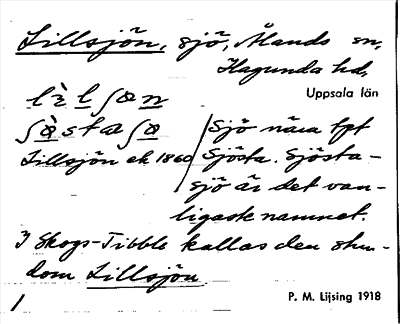 Lillsjön, sjö, Ålands sn,
Hagunda hd,
Uppsala län
lìlʃøn
ʃø̀staʃø
Lillsjön ek 1860
Sjö nära tpt
Sjösta. Sjösta-
sjö är det van-
ligaste namnet.
I Skogs-Tibble kallas den stun-
dom Lillsjön
1
P. M. Lijsing 1918